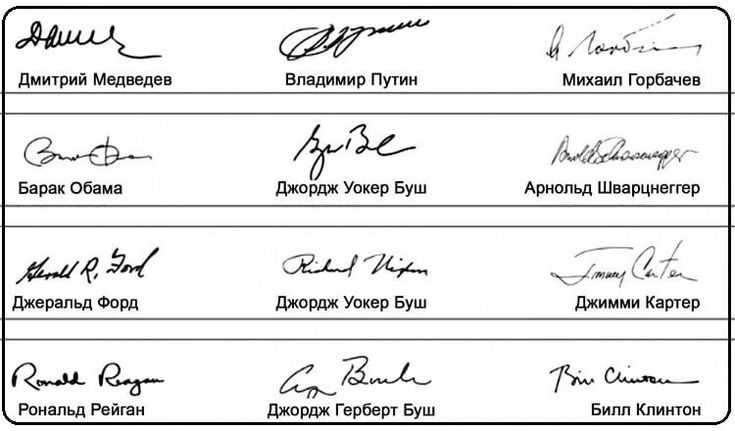 Дмитрий Медведев Владимир Путин Михаил Горбачев
Барак Обама Джордж Уокер Буш Арнольд Шварцнеггер
Gerald R. Ford Richard Nixon Jimmy Carter
Джеральд Форд Джордж Уокер Буш Джимми Картер
Ronald Reagan Bill Clinton
Рональд Рейган Джордж Герберт Буш Билл Клинтон